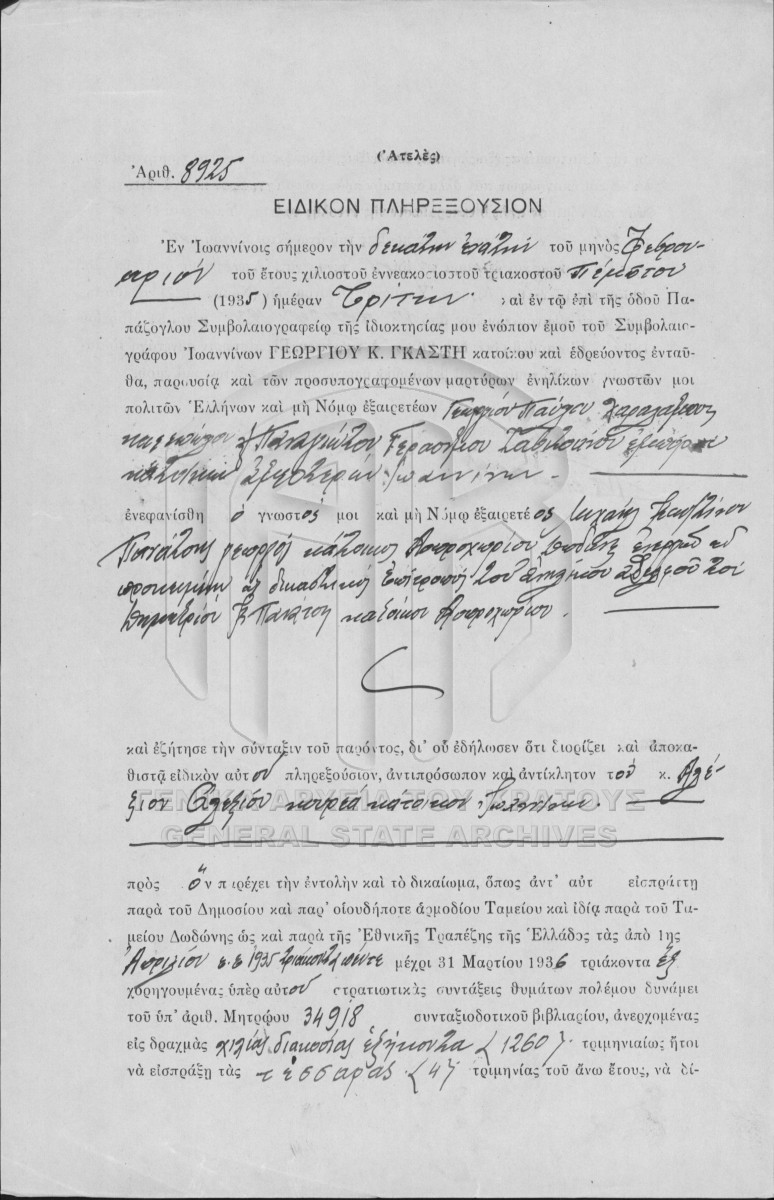 (Ἀτελὲς)
Ἀριθ. 8925
ΕΙΔΙΚΟΝ ΠΛΗΡΕΞΟΥΣΙΟΝ
Ἐν Ἰωαννίνοις σήμερον τὴν δεκάτην ἐνάτην τοῦ μηνὸς Φεβρου-
αρίου τοῦ ἔτους χιλιοστοῦ ἐννεακοσιοστοῦ τριακοστοῦ πέμπτου
(1935) ἡμέραν Τρίτην καὶ ἐν τῷ ἐπὶ τῆς ὁδοῦ Πα-
πάζογλου Συμβολαιογραφείῳ τῆς ἰδιοκτησίας μου ἐνώπιον ἐμοῦ τοῦ Συμβολαιο-
γράφου Ἰωαννίνων ΓΕΩΡΓΙΟΥ Κ. ΓΚΑΣΤΗ κατοίκου καὶ ἑδρεύοντος ἐνταῦ-
θα, παρουσίᾳ καὶ τῶν προσυπογραφομένων μαρτύρων ἐνηλίκων γνωστῶν μοι
πολιτῶν Ἑλλήνων καὶ μὴ Νόμῳ ἐξαιρετέων Γεωργίου Παύλου
Παναγιώτου Γερασίμου
κατοίκων ἀμφοτέρων Ἰωαννίνων.
ἐνεφανίσθη ὁ γνωστός μοι καὶ μὴ Νόμῳ ἐξαιρετέος
γεωργὸς κάτοικος Ἀσπροχωρίου Δωδώνης
προκειμένῳ ὡς δικαστικὸς ἐπίτροπος τοῦ ἀνηλίκου ἀδελφοῦ του
Δημητρίου κατοίκου Ἀσπροχωρίου.
καὶ ἐζήτησε τὴν σύνταξιν τοῦ παρόντος, δι' οὗ ἐδήλωσεν ὅτι διορίζει καὶ ἀποκα-
θιστᾷ εἰδικὸν αὐτοῦ πληρεξούσιον, ἀντιπρόσωπον καὶ ἀντίκλητον τὸν κ. Ἀλέ-
ξιον Ἀλεξίου κουρέα κάτοικον Ἰωαννίνων.
ΓΕΝΙΚΑ ΑΡΧΕΙΑ ΤΟΥ ΚΡΑΤΟΥΣ
GENERAL STATE ARCHIVES
πρὸς ὃν παρέχει τὴν ἐντολὴν καὶ τὸ δικαίωμα, ὅπως ἀντ' αὐτ εἰσπράττῃ
παρὰ τοῦ Δημοσίου καὶ παρ' οἱουδήποτε ἁρμοδίου Ταμείου καὶ ἰδίᾳ παρὰ τοῦ Τα-
μείου Δωδώνης ὡς καὶ παρὰ τῆς Ἐθνικῆς Τραπέζης τῆς Ἑλλάδος τὰς ἀπὸ 1ης
Ἀπριλίου ἐ.ἔ 1935 τριάκοντα πέντε μέχρι 31 Μαρτίου 1936 τριάκοντα ἓξ
χορηγουμένας ὑπὲρ αὐτοῦ στρατιωτικὰς συντάξεις θυμάτων πολέμου δυνάμει
τοῦ ὑπ' ἀριθ. Μητρῴου 34918 συνταξιοδοτικοῦ βιβλιαρίου, ἀνερχομένας
εἰς δραχμὰς χιλίας διακοσίας ἑξήκοντα (1260) τριμηνιαίως ἤτοι
νὰ εἰσπράξῃ τὰς τέσσαρας (4) τριμηνίας τοῦ ἄνω ἔτους, νὰ δί-